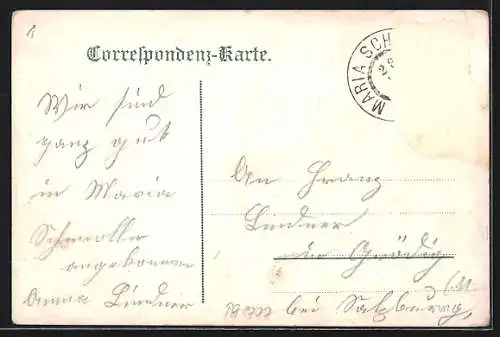 Correspondenz-Karte.
MARIA SCH
Wir sind
ganz gut
in Maria
Schmolln
angekommen
Anna Lindner
An Franz
Lindner
in Grödig
bei Salzburg,